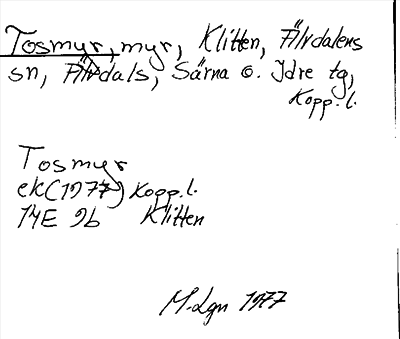 Tosmyr, myr, Klitten, Älvdalens
sn, Älvdals, Särna o. Idre tg,
Kopp. l.
Tosmyr
ek (1977) Kopp. l.
14E 9b Klitten
M. Lgn 1977